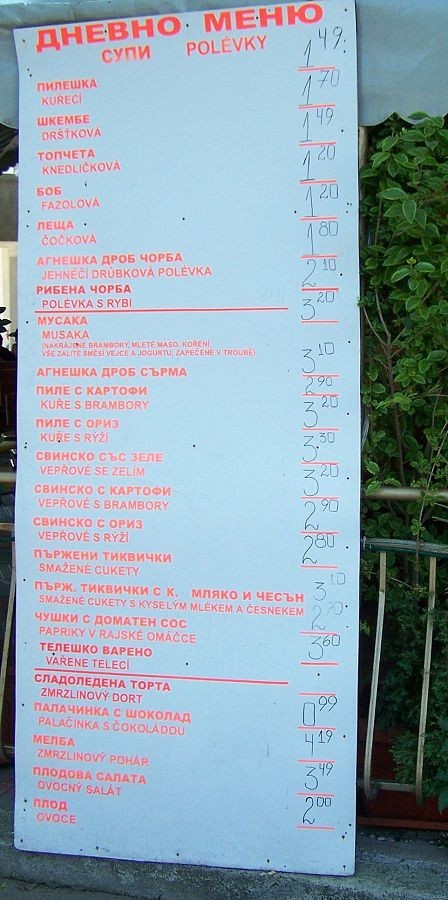 ДНЕВНО МЕНЮ
СУПИ POLÉVKY
1 49
ПИЛЕШКА
KUŘECÍ
1 70
ШКЕМБЕ
DRŠŤKOVÁ
1 49
ТОПЧЕТА
KNEDLIČKOVÁ
1 20
БОБ
FAZOLOVÁ
1 20
ЛЕЩА
ČOČKOVÁ
1 80
АГНЕШКА ДРОБ ЧОРБА
JEHNĚČÍ DRŮBKOVÁ POLÉVKA
2 10
РИБЕНА ЧОРБА
POLÉVKA S RYBI
3 20
МУСАКА
MUSAKA
(NAKRÁJENÉ BRAMBORY, MLETÉ MASO, KOŘENÍ,
VŠE ZALITÉ SMĚSÍ VEJCE A JOGURTU, ZAPEČENÉ V TROUBĚ)
3 10
АГНЕШКА ДРОБ СЪРМА
2 90
ПИЛЕ С КАРТОФИ
KUŘE S BRAMBORY
3 20
ПИЛЕ С ОРИЗ
KUŘE S RÝŽÍ
3 30
СВИНСКО СЪС ЗЕЛЕ
VEPŘOVÉ SE ZELÍM
3 20
СВИНСКО С КАРТОФИ
VEPŘOVÉ S BRAMBORY
2 90
СВИНСКО С ОРИЗ
VEPŘOVÉ S RÝŽÍ
2 80
ПЪРЖЕНИ ТИКВИЧКИ
SMAŽENÉ CUKETY
3 10
ПЪРЖ. ТИКВИЧКИ С К. МЛЯКО И ЧЕСЪН
SMAŽENÉ CUKETY S KYSELÝM MLÉKEM A ČESNEKEM
ЧУШКИ С ДОМАТЕН СОС
PAPRIKY V RAJSKÉ OMÁČCE
3 60
ТЕЛЕШКО ВАРЕНО
VAŘENE TELECÍ
СЛАДОЛЕДЕНА ТОРТА
ZMRZLINOVÝ DORT
0 99
ПАЛАЧИНКА С ШОКОЛАД
PALAČINKA S ČOKOLÁDOU
4 19
МЕЛБА
ZMRZLINOVÝ POHÁR
3 49
ПЛОДОВА САЛАТА
OVOCNÝ SALÁT
2 00
ПЛОД
OVOCE